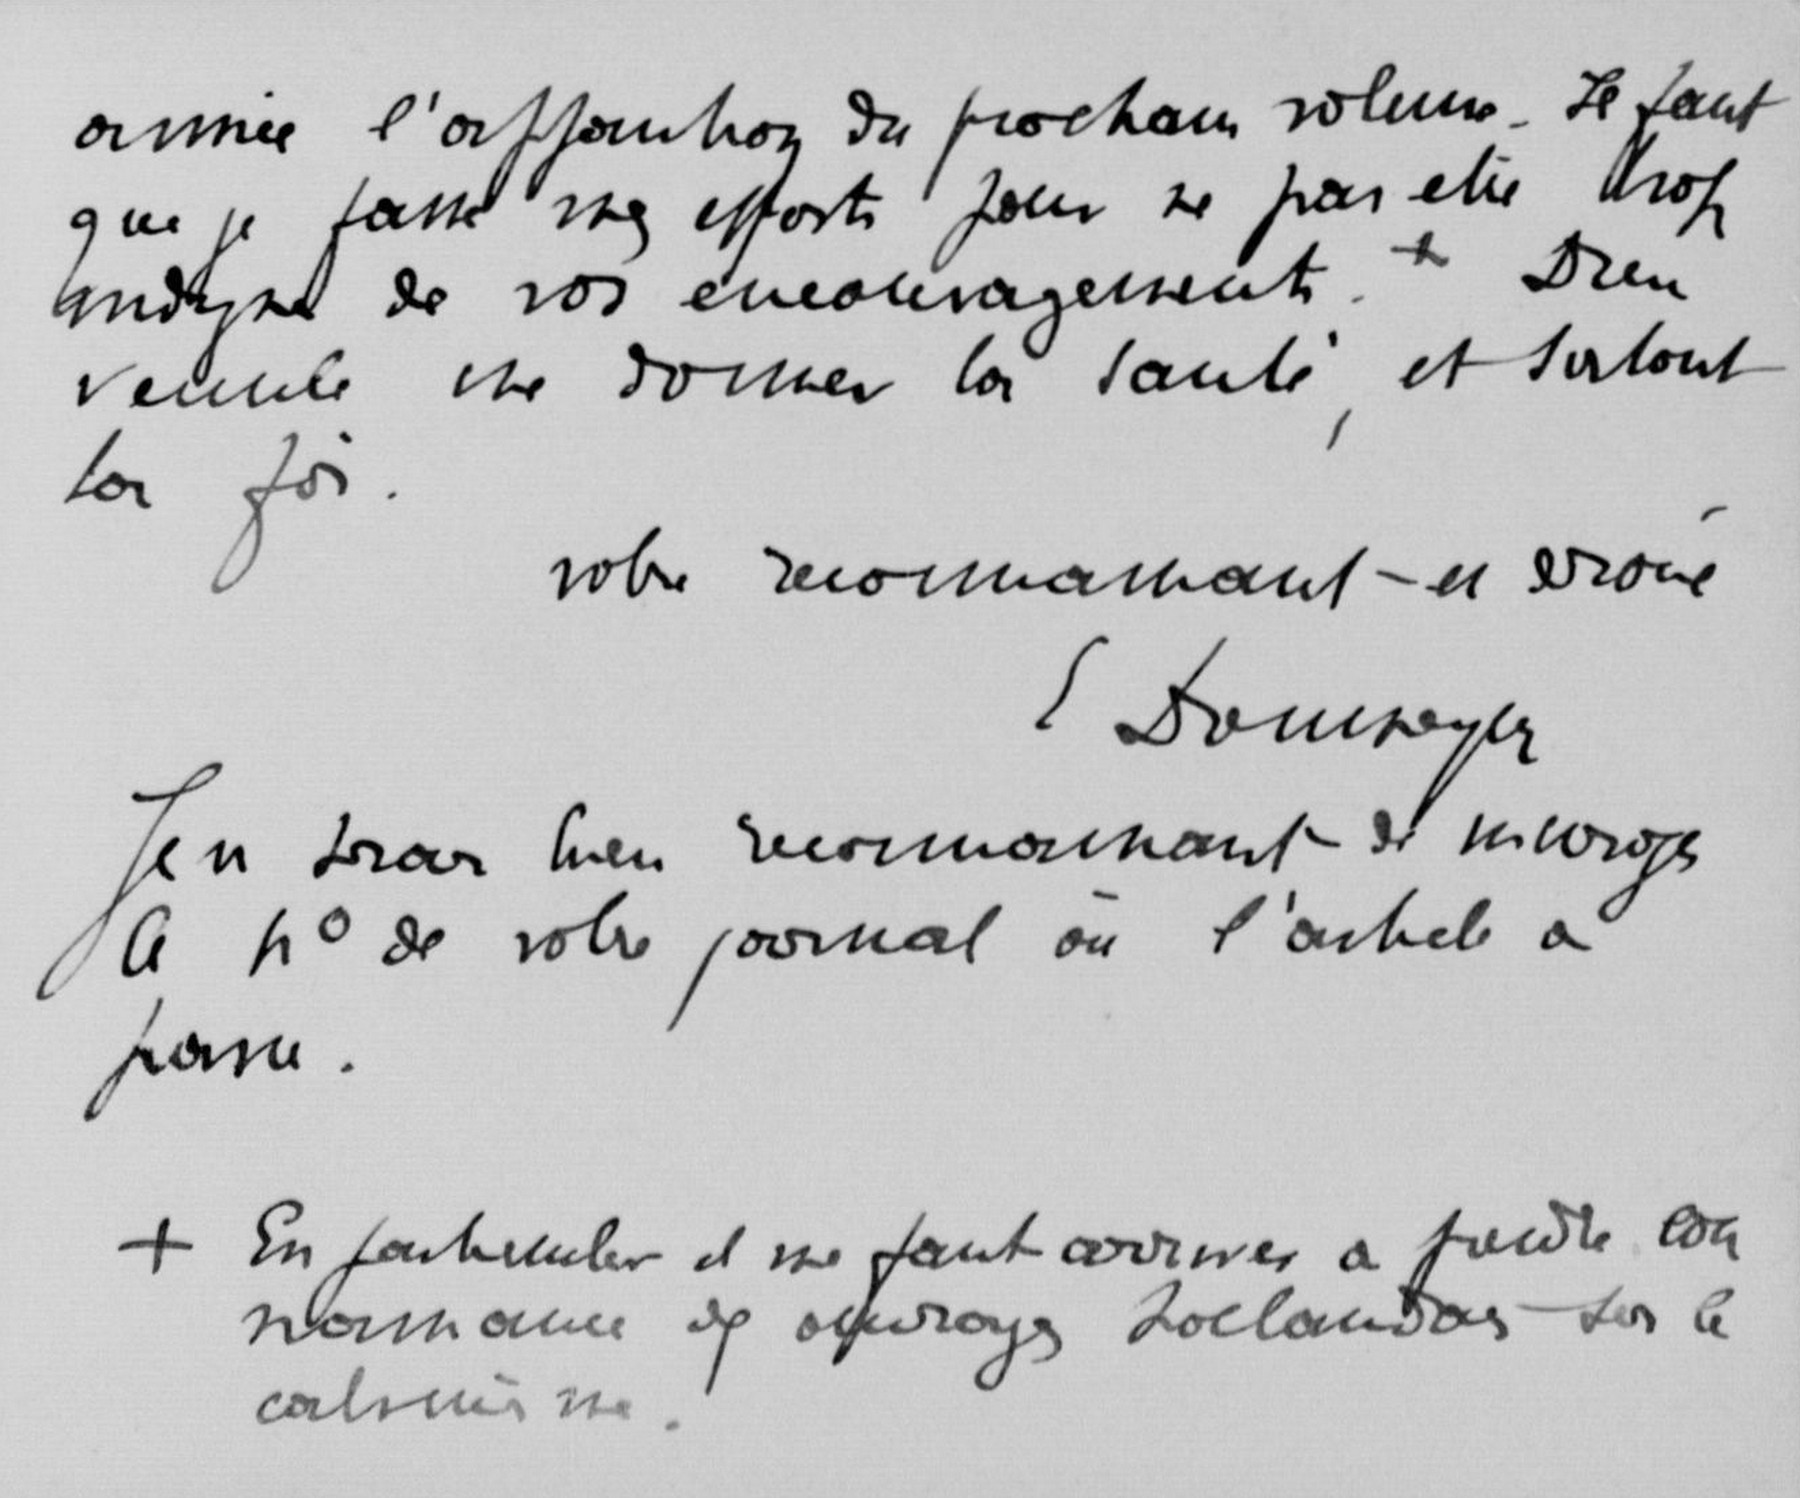 année l'apparition du prochain volume. Il faut
que je fasse mes efforts pour ne pas être trop
indigne de vos encouragements. + Dieu
veuille me donner la santé, et surtout
la foi.
votre reconnaissant et dévoué
E Doumergue
Je serai bien reconnaissant de m'envoyer
le no de votre journal où l'article a
passé.
+ En particulier il me faut arriver à prendre con
naissance des ouvrages hollandais sur le
calvinisme.